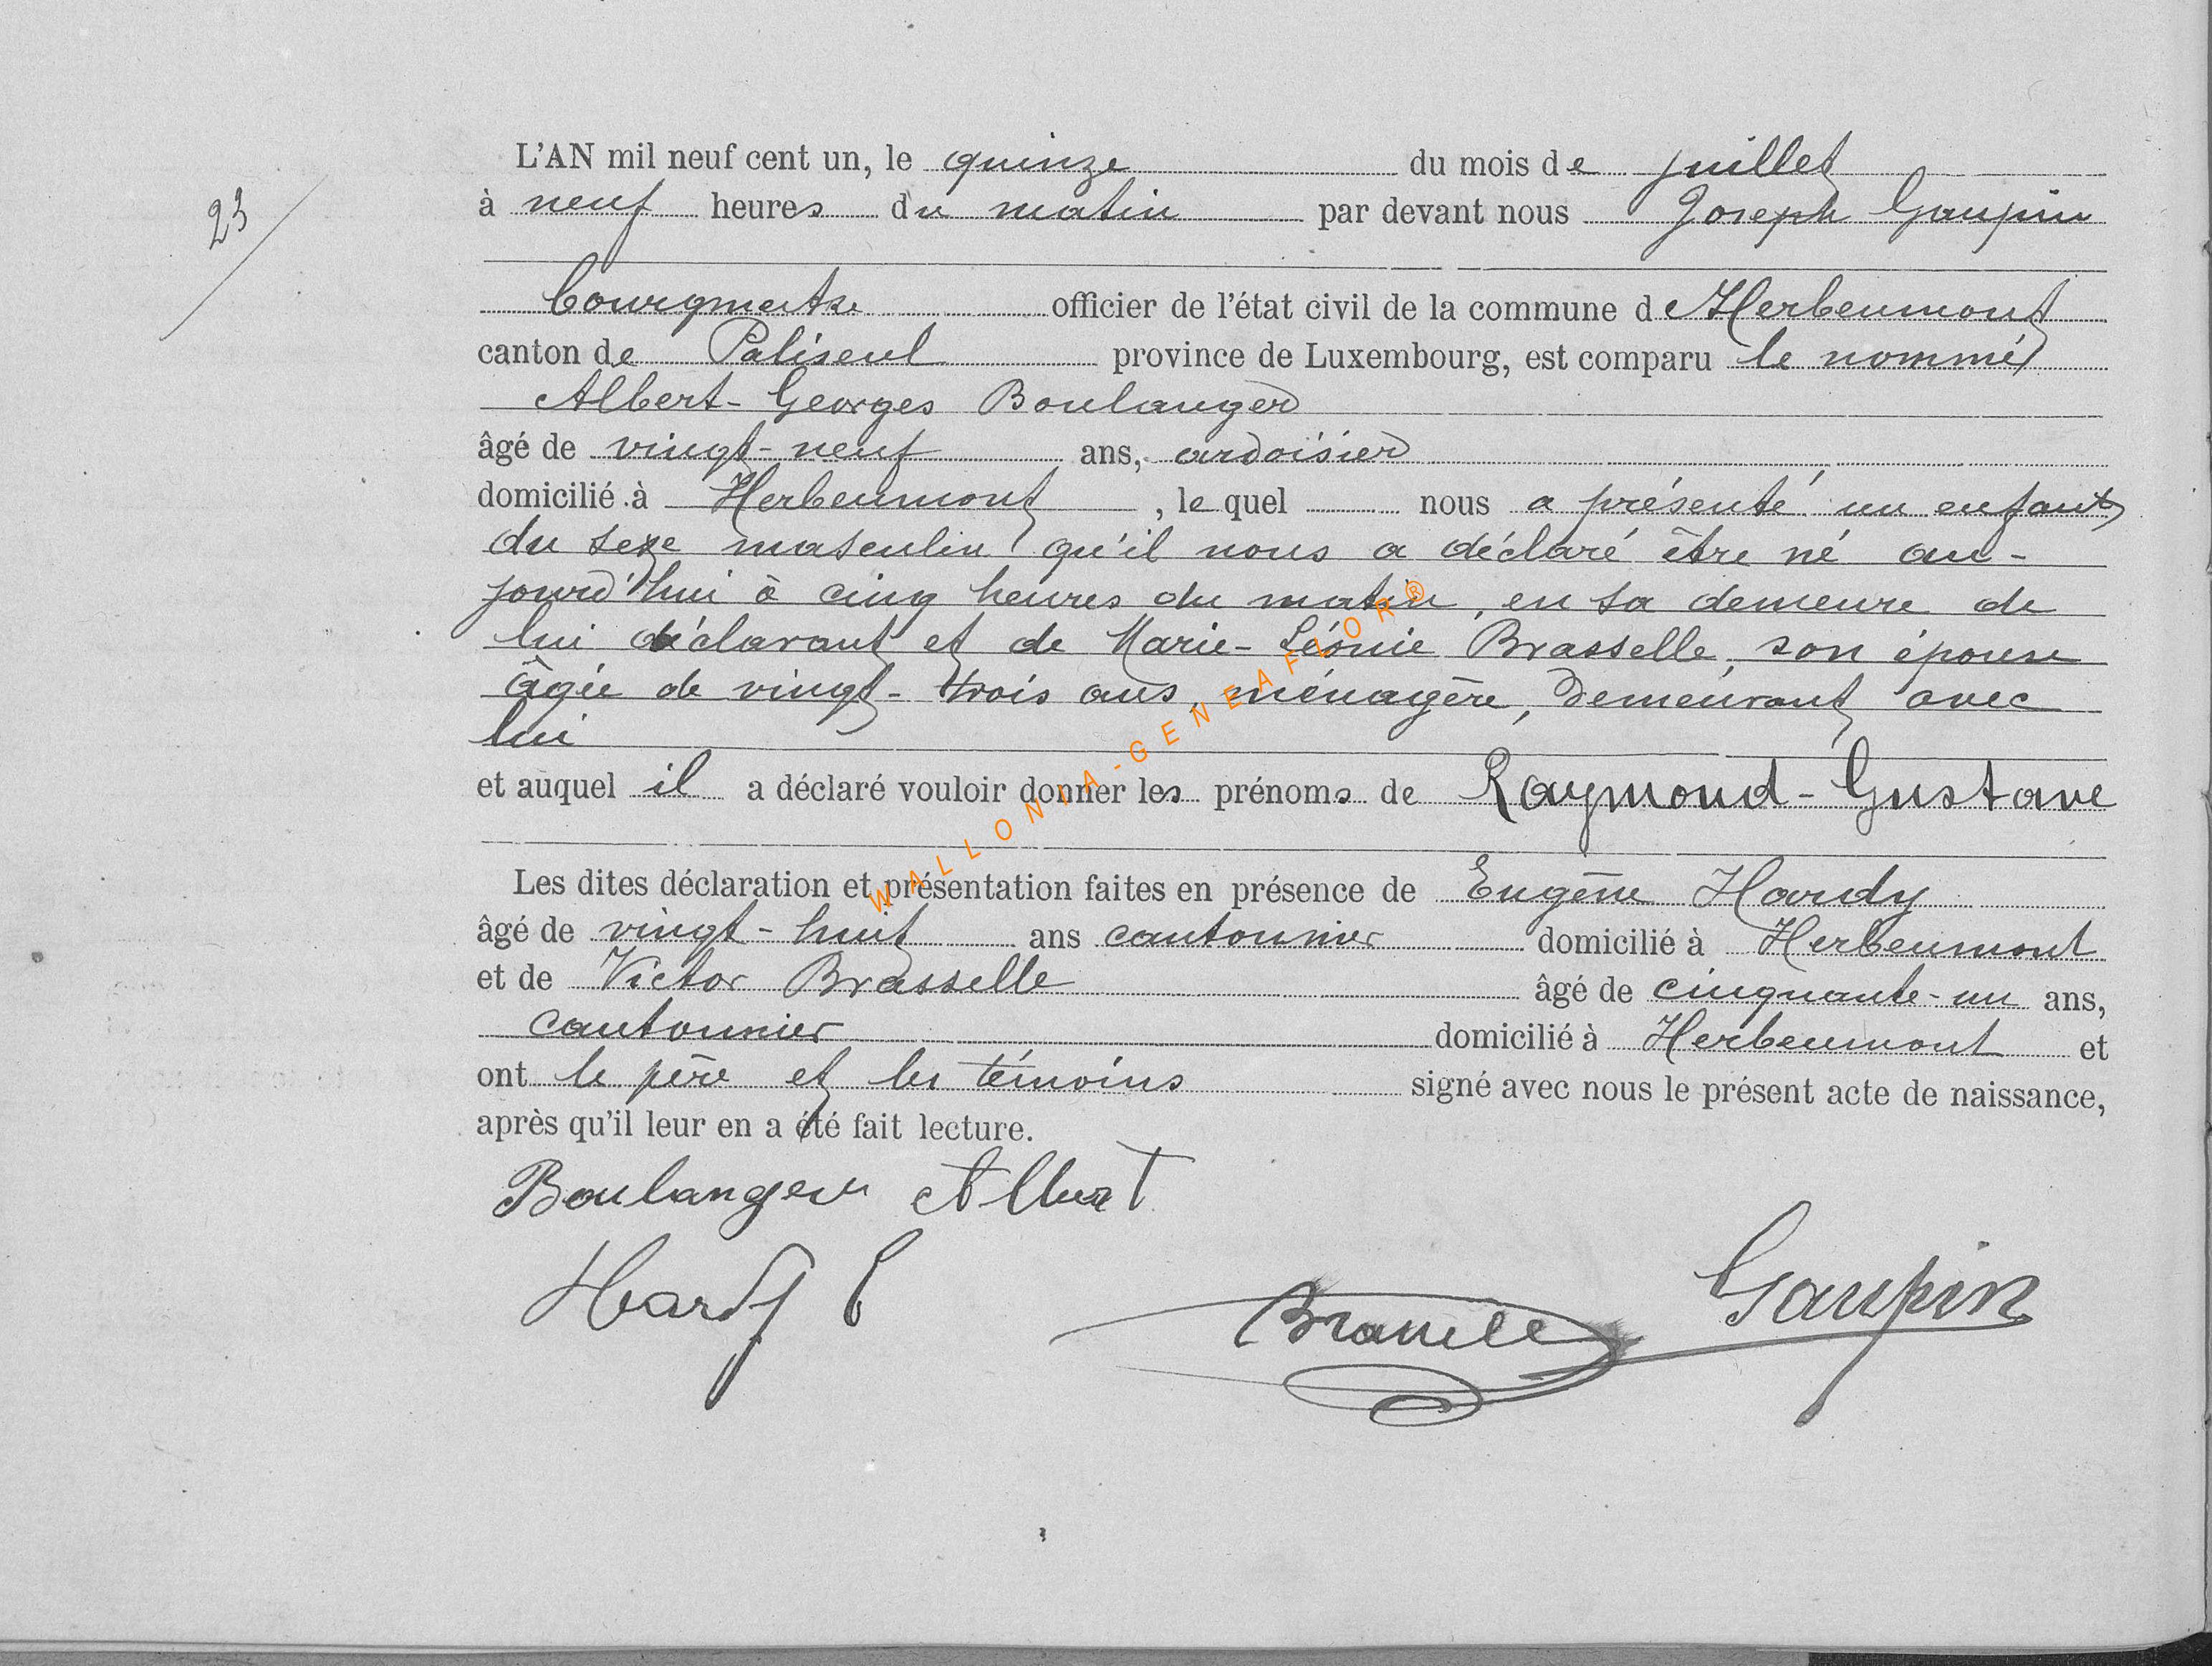 23
L'AN mil neuf cent un, le quinze du mois de juillet
à neuf heures du matin par devant nous Joseph Gaupin
bourgmestre officier de l'état civil de la commune d Herbeumont
canton de Paliseul province de Luxembourg, est comparu le nommé
Albert-Georges Boulanger
âgé de vingt-neuf ans, ardoisier
domicilié à Herbeumont, le quel nous a présenté un enfant
du sexe masculin qu'il nous a déclaré être né au-
jourd'hui à cinq heures du matin, en sa demeure de
lui déclarant et de Marie-Léonie Brasselle, son épouse
âgée de vingt-trois ans, ménagère, demeurant avec
lui
et auquel il a déclaré vouloir donner les prénoms de Raymond-Gustave
Les dites déclaration et présentation faites en présence de Eugène Hardy
âgé de vingt-huit ans cantonnier domicilié à Herbeumont
et de Victor Brasselle âgé de cinquante-un ans,
cantonnier domicilié à Herbeumont et
ont le père et les témoins signé avec nous le présent acte de naissance,
après qu'il leur en a été fait lecture.
Boulanger Albert
Hardy E
Brasselle
Gaupin
WALLONIA-GENEAFLOR®